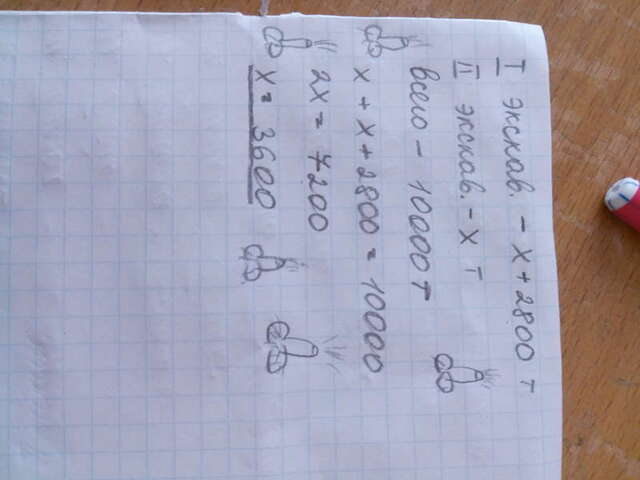 I экскав. - х + 2800 т
II экскав. - х т
всего - 10000 т
х + х + 2800 = 10000
2х = 7200
х = 3600